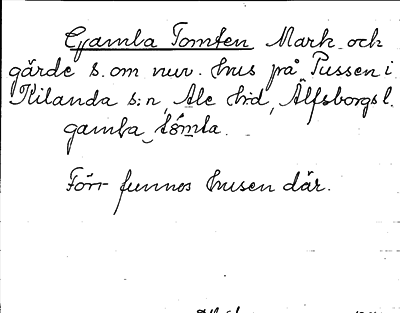 Gamla Tomten Mark och
gärde s. om nuv. hus på Tussen i
Kilanda s:n, Ale hd, Älfsborgs l.
gamla tómta.
Förr funnos husen där.